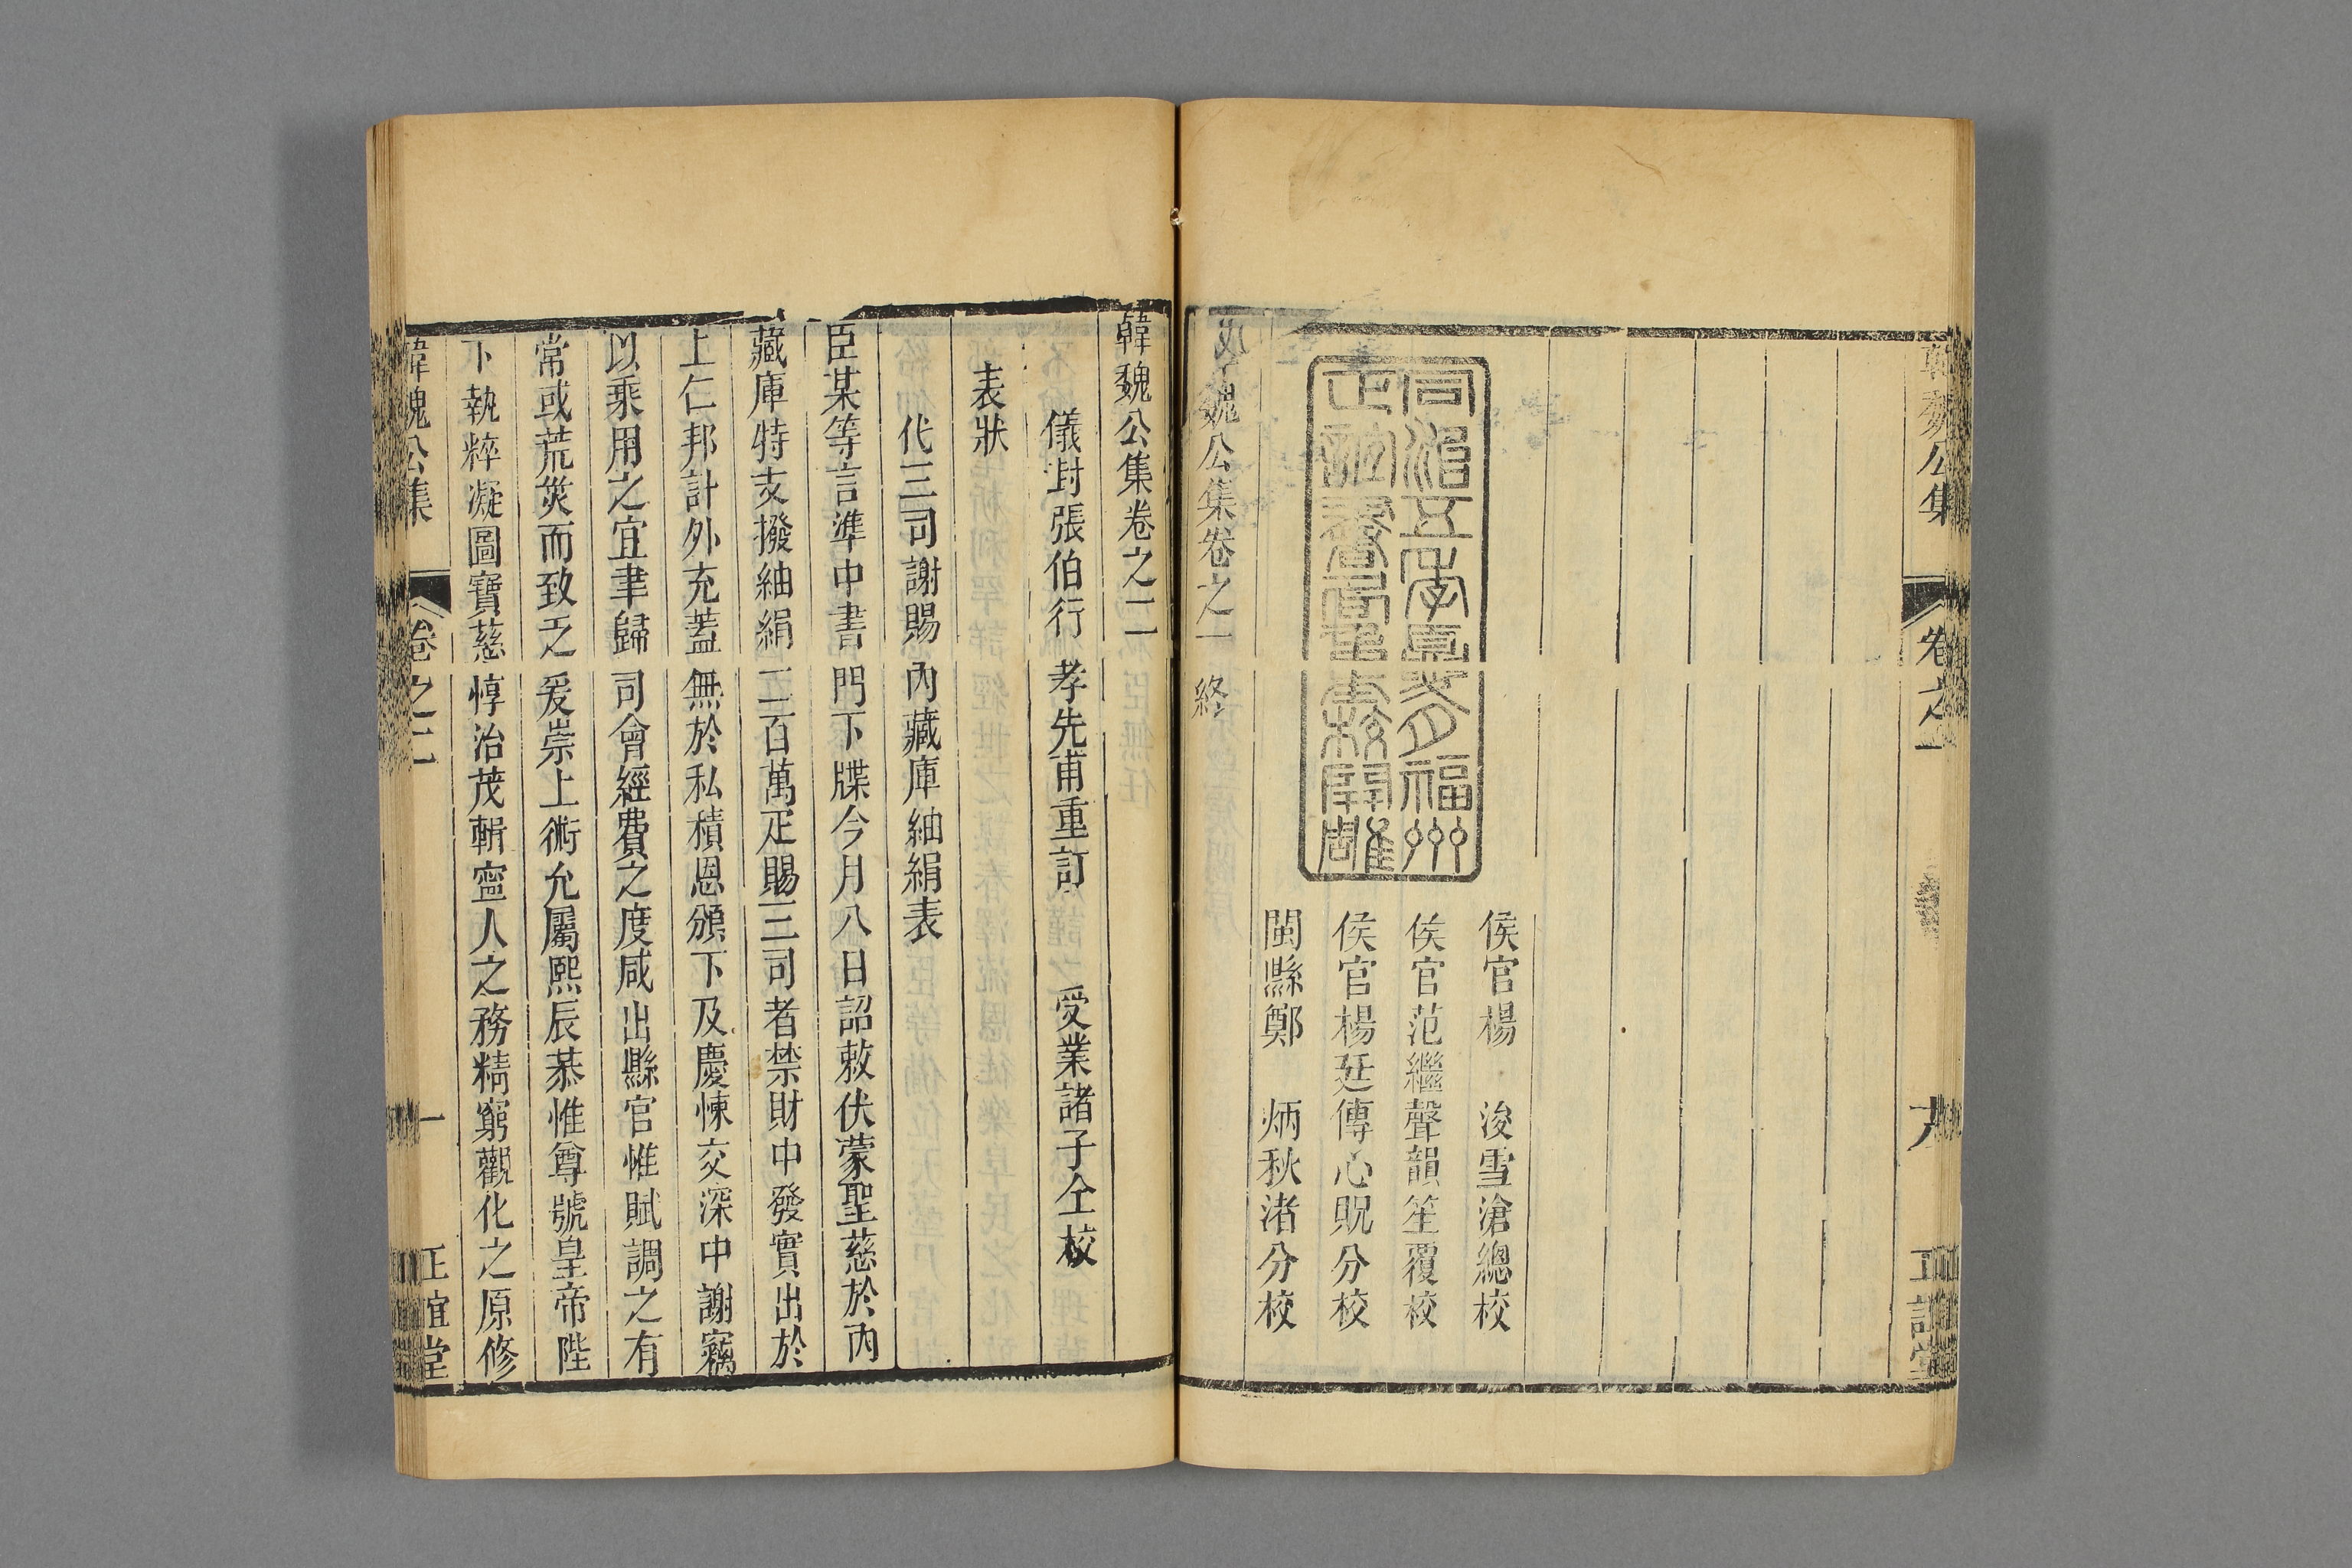 韓魏公集
卷之一
正誼堂
同治五年夏月福州
正誼書局重校開雕
侯官楊浚雪滄總校
侯官范繼聲韻笙覆校
侯官楊廷傳心貺分校
閩縣鄭炳秋渚分校
魏公集卷之一終
韓魏公集卷之二
儀封張伯行孝先甫重訂受業諸子仝校
表狀
代三司謝賜內藏庫紬絹表
臣某等言準中書門下牒今月八日詔敕伏蒙聖慈於內
藏庫特支撥紬絹二百萬疋賜三司者禁財中發實出於
上仁邦計外充蓋無於私積恩頒下及慶悚交深中謝竊
以乘用之宜聿歸司會經費之度咸出縣官惟賦調之有
常或荒災而致乏爰崇上術允屬熙辰恭惟尊號皇帝陛
下執粹凝圖寶慈惇治茂輯寧人之務精窮觀化之原修
韓魏公集
卷之二
一
正誼堂